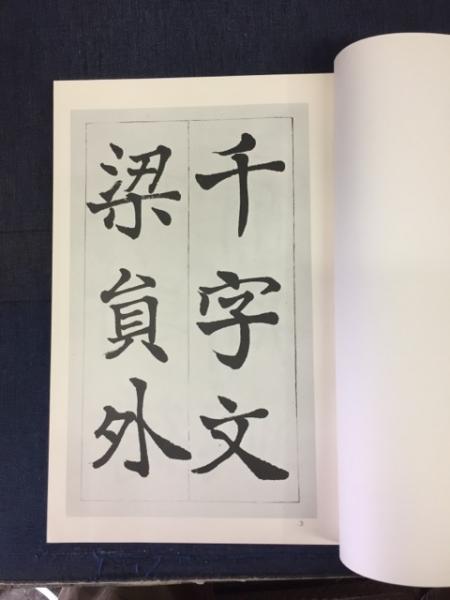 千字文
梁員外
3